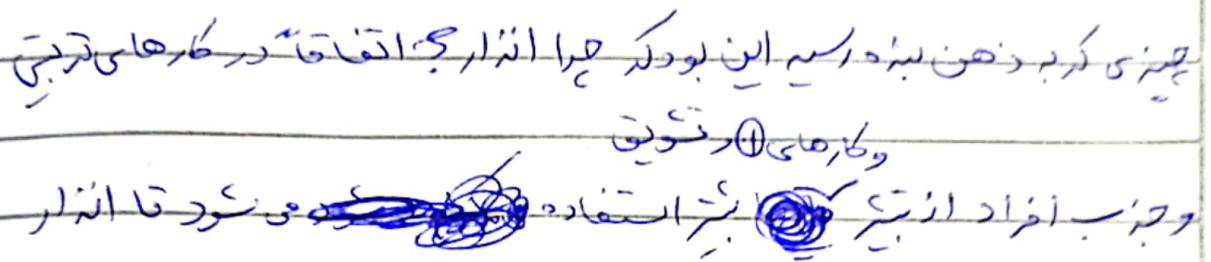 چیزی که به ذهن بنده رسید این بود که چرا انذار؟ اتفاقاً در کارهای تربیتی
و کارهای ⊕ و تشویق
و جذب افراد از تبشیر بیشتر استفاده می شود تا انذار